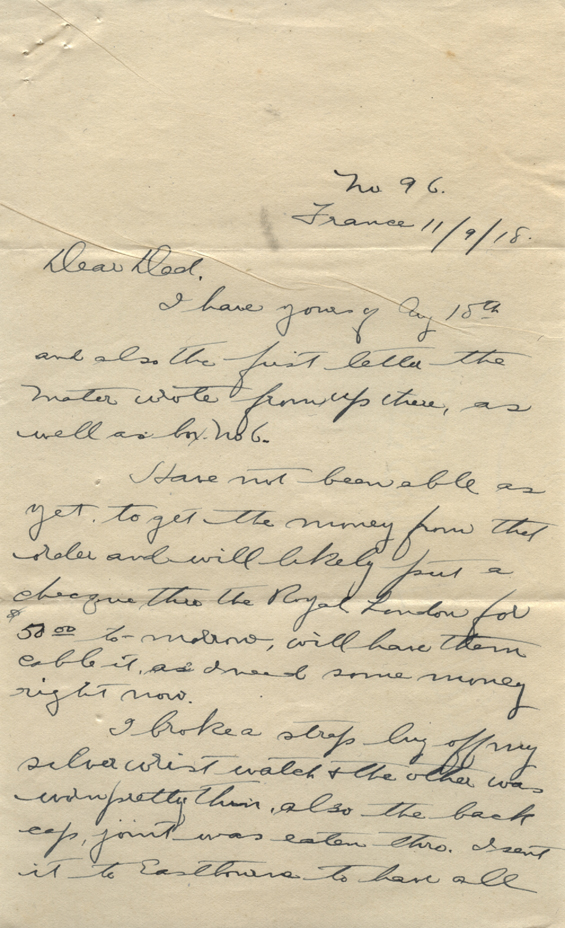 No 96.
France 11/9/18.
Dear Dad,
I have yours of Aug 18th
and also the first letter the
Mater wrote from up there, as
well as box No 6.
Have not been able as
yet to get the money from that
order and will likely put a
cheque thro the Royal London for
$50.00 to-morrow, will have them
cable it, as I need some money
right now.
I broke a strap lug off my
silver wrist watch & the other was
worn pretty thin, also the back
cap, joint was eaten thro. I sent
it to Eastbourne to have all